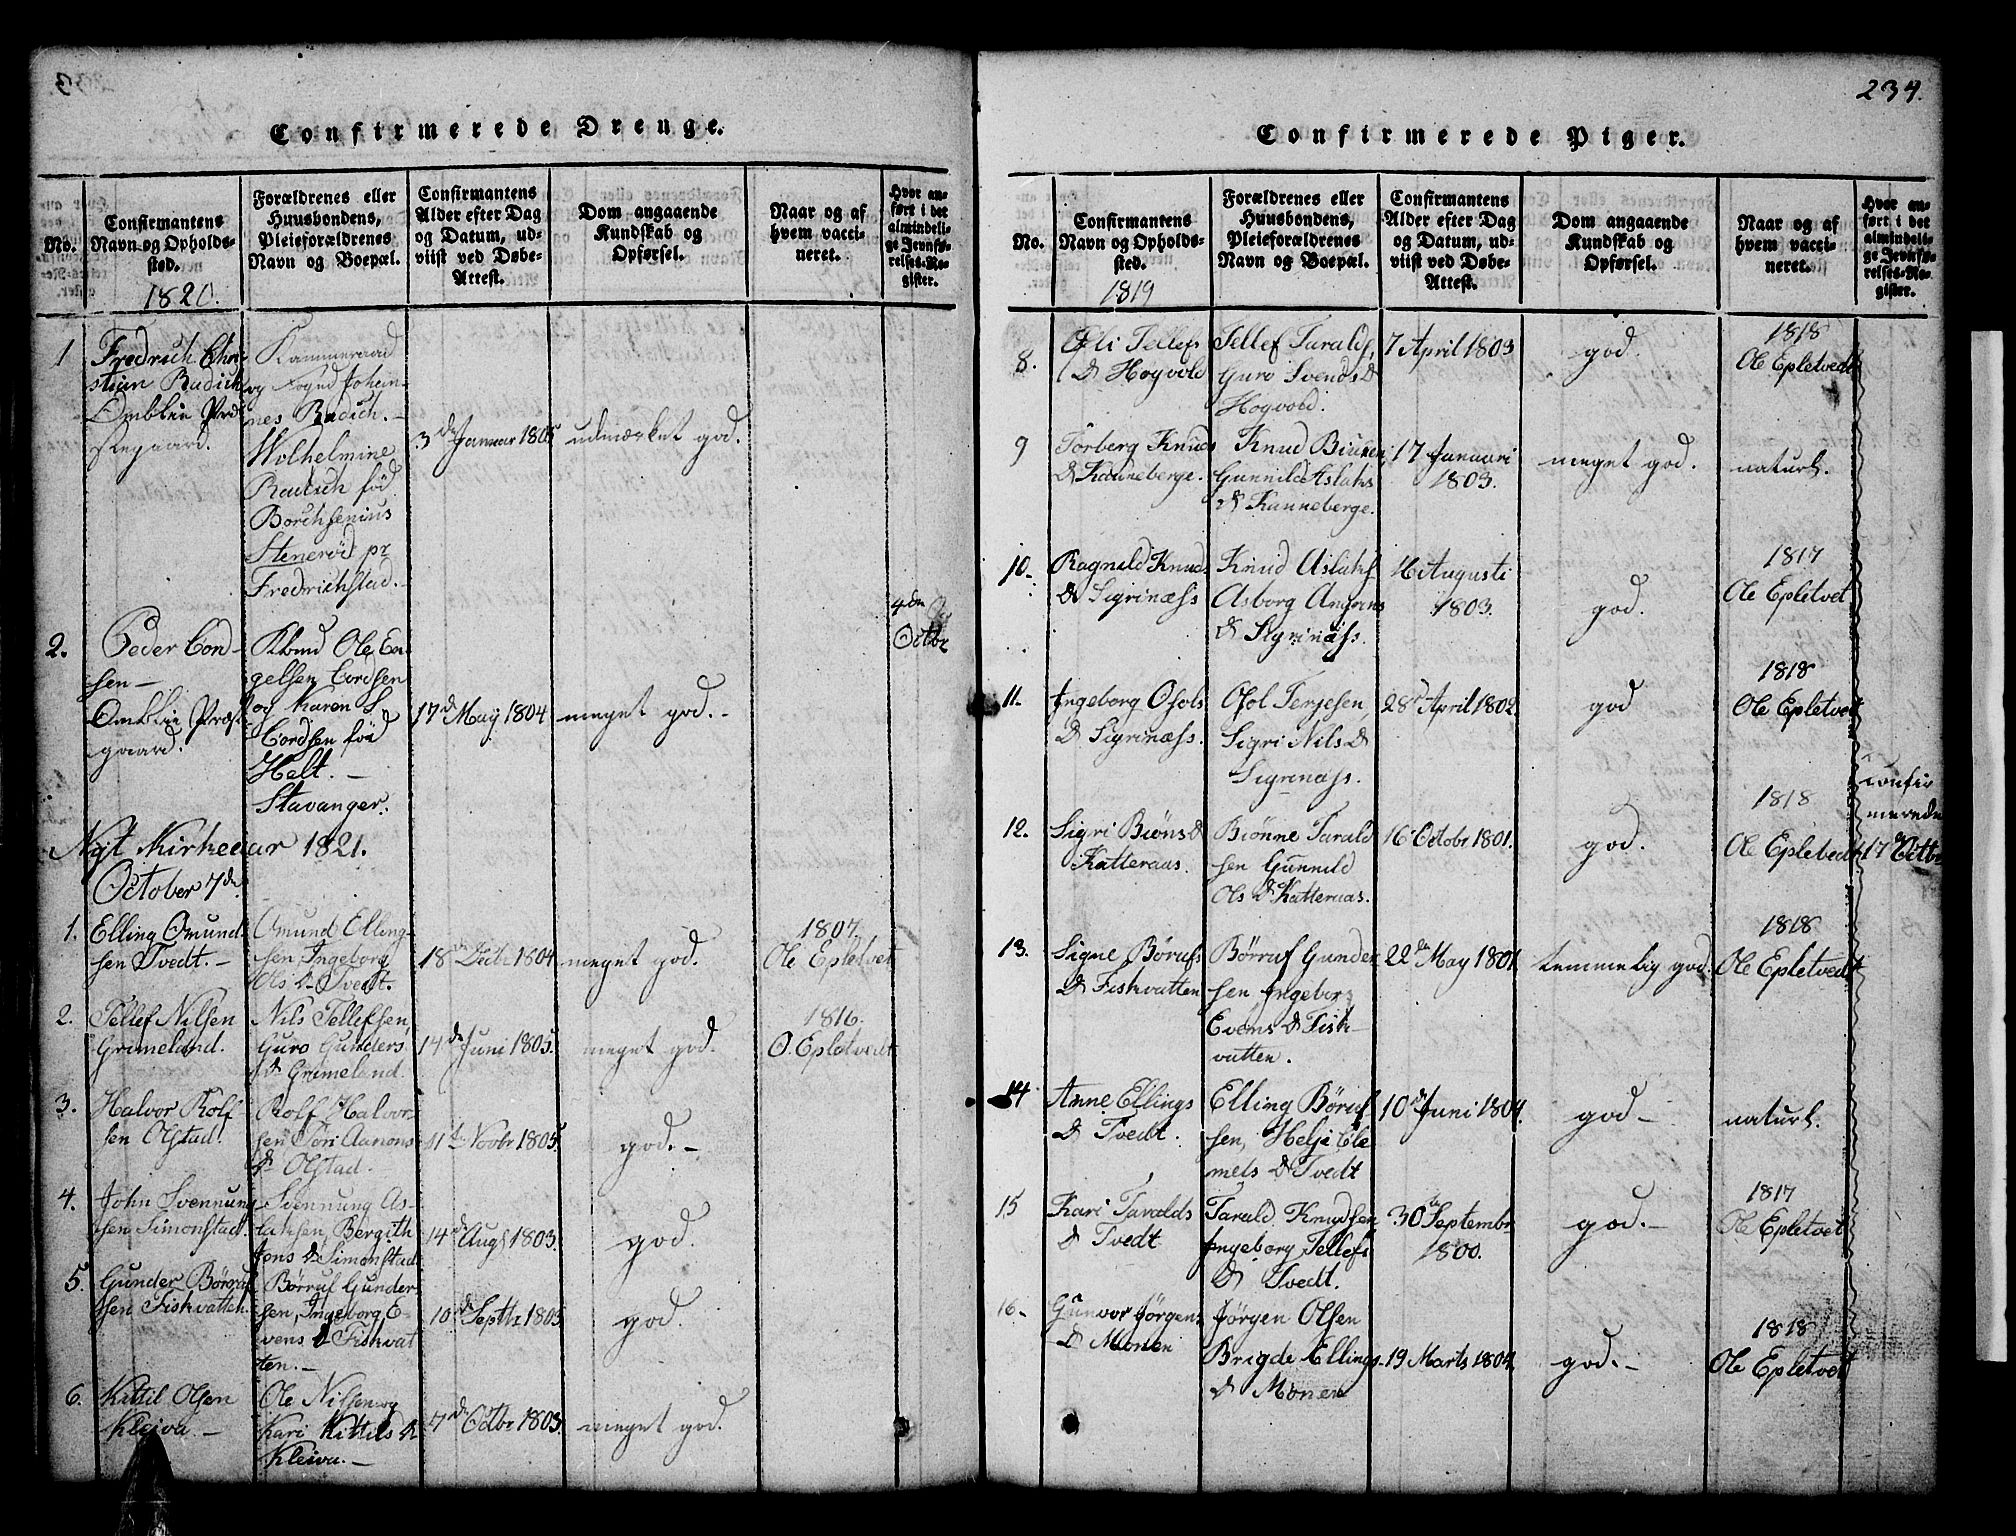 Confirmerede Drenge.
No.
Confirmantens
Navn og Opholds-
sted.
1820.
Forældrenes eller
Huusbondens,
Pleieforældrenes
Navn og Boepæl.
Confirmantens
Alder efter Dag
og Datum, ud-
viist ved Døbe-
Attest.
Dom angaaende
Kundskab og
Opførsel.
Naar og af
hvem vacci-
neret.
Hvor an-
ført i det
almindeli-
ge Jevnfø-
relses-Re-
gister.
1
Fredrich Chri-
stian Radich
Omblie Præ-
stegaard.
Kammeraad
og Fogud Johan-
nes Radich.
Wilhelmine
Radich fød
Borchsenius
Stenerød pr
Fredrichstad.
3de Januar 1805
udmærket god.
4de
Octbr
2.
Peder Cord-
sen
Omblie Præst-
gaard.
Ole En-
gelsen Cordsen
og Karen S.
Cordsen fød
Helt.
Stavanger.
17d May 1804
meget god.
Nyt Kirkeaar 1821.
October 7de
1.
Elling Omund-
sen Tvedt.
Omund Elling-
sen, Ingeborg
Ols D Tvedt.
18de Decbr 1804
meget god.
1807.
Ole Epletvet
2.
Tellef Nilsen
Grimeland.
Nils Tellefsen,
Guro Gunders
D Grimeland.
14de Juni 1805.
meget god.
1816.
O. Epletvedt
3.
Halvor Rolf-
sen Olstad.
Rolf Halvor-
sen Tori Aanons
D Olstad.
11d Novbr 1805
god.
4.
John Svennung-
sen Simonstad.
Svennung As-
laksen, Bergith
Jons D Simonstad
14d Aug 1803.
god.
5.
Gunder Børruf-
sen Fiskvatten.
Børruf Gunder-
sen, Ingeborg E-
vens D Fiskvat
ten.
10d Septbr 1803
god.
6.
Kittil Olsen
Kleiva
Ole Nilsen og
Kari Kittils D
Kleiva.
7de Octbr 1803.
meget god.
234.
Confirmerede Piger.
No.
Confirmantens
Navn og Opholds-
sted.
1819
Forældrenes eller
Huusbondens,
Pleieforældrenes
Navn og Boepæl.
Confirmantens
Alder efter Dag
og Datum, ud-
viist ved Døbe-
Attest.
Dom angaaende
Kundskab og
Opførsel.
Naar og af
hvem vacci-
neret.
Hvor an-
ført i det
almindeli-
ge Jevnfø-
relses-Re-
gister.
8.
Tellefs
D Hogvold
Tellef Taralds,
Guro Svends D
Hogvold.
7 April 1803
god.
1818
Ole Epletvedt
9
Torberg Knuds
D Kanneberge.
Knud
Gunnild Aslaks
D Kanneberge.
17 Januari
1803.
meget god.
naturl.
10.
Ragnild Knuds
D Sigrinæss
Knud Aslaks
Asborg
D Sigrinæss.
16 Augusti
1803.
god.
1817
Ole Epletvet
11.
Ingeborg Osols
D Sigrinæss.
Osol Terjesen,
Sigri Nils D
Sigrinæss.
28d April 1802.
god
1818
Ole Epletvet
12.
Sigri Biøns D
Katteraas.
Biønne Tarald
sen Gunnild
Ols D Katteraas.
16 Octobr 1801.
god.
1818
Ole Epletvedt.
confir
merede
17de Octbr
13.
Signe Børufs
D Fiskvatten
Børruf Gunder
sen Ingeborg
Evens D Fisk-
vatten.
22de May 1801.
temmelig god.
1818
Ole Epletvedt
14
Anne Ellings
D Tvedt.
Elling Børuf
sen, Helje Cle
mets D Tvedt
10d Juni 1804.
god
naturl.
15
Kari Taralds
D Tvedt
Tarald Knudsen
Ingeborg Tellefs
D Tvedt.
30te Septembr
1800.
god.
1817
Ole Epletvet
16.
Gunvor Jørgens
D Monen
Jørgen Olsen
Brigde Ellings
D Monen
19 Marts 1804.
god.
1818
Ole Epletvet